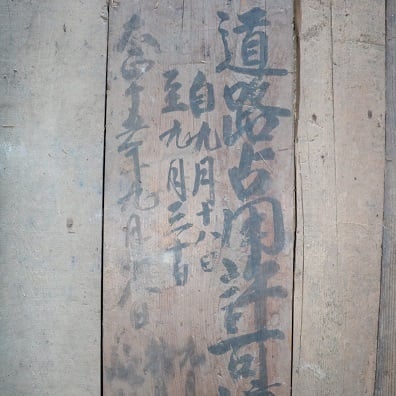 道路占用許可
自九月十八日
至九月三十日
大正十五年九月十八日